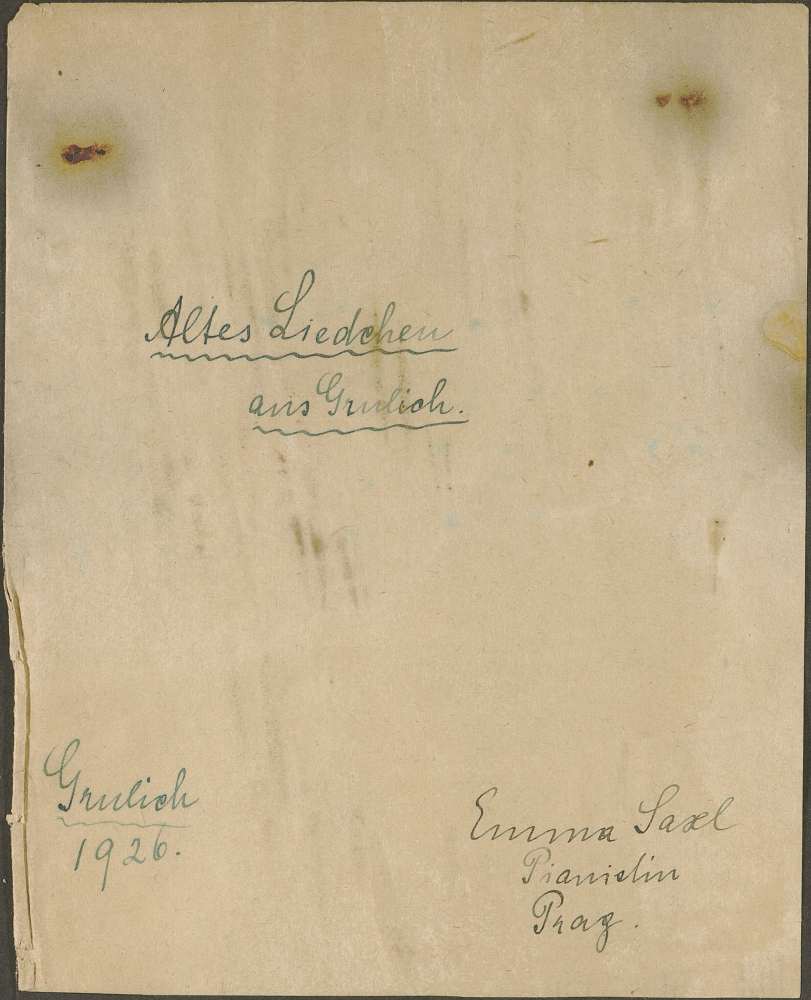 Altes Liedchen
aus Grulich.
Grulich
1926.
Emma Saxl
Pianistin
Prag.